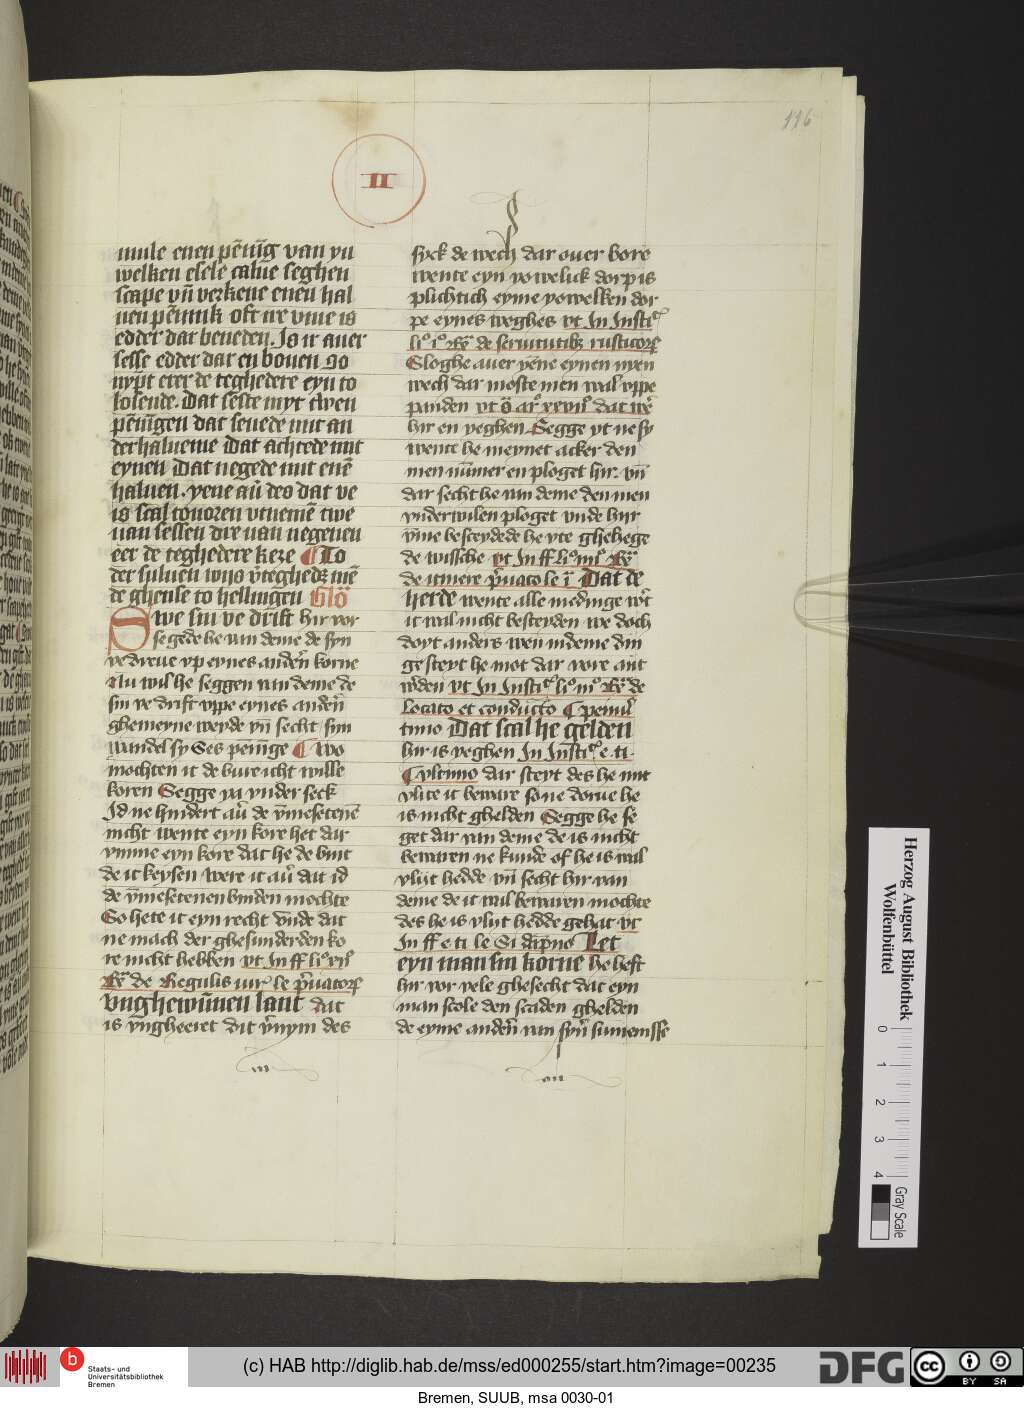 116
II
mule enen pēnīg van yu
welken esele calue seghen
scape vn̄ verkene enen hal
uen pēnnik oft ire viue is
edder dar beneden. Is ir auer
sesse edder dar en bouen so
nypt erer de teghedere eyn to
losende. Dat seste myt twen
pēnigen dat seuede mit an
derhalueme dat achtede mit
eynen dat negede mit enē
haluen. yene au̅ deo dat ve
is scal touoren vtnemē twe
uan sessen dre uan negenen
eer de teghedere keze To
der suluen wijs
de ghense to hellingen Glō
Swe sin ve drift hir vor
segede he van deme de syn
ve dreue vp eynes anderꝰ korne
Nu wil he seggen van deme de
sin ve drift vppe eynes anderꝰ
ghemeyne weyde vn̄ secht syn
wandel sy Ses pēnige Wo
mochten it de bure icht wille
koren Segge ya vnder seck
Id ne hindert au̅ de v̄mesetenē
nicht wente eyn kore het dar
vmme eyn kore dat he de bint
de it keysen were it au̅ dat id
de v̄mesetenen binden mochte
So hete it eyn recht vnde dat
ne mach der ghesunderden ko
re nicht hebben vt In ff li°
de Regulis iur̄ le
vnghewūnen lant dat
is vngheeret dit v̄nym des
syck de wech dar ouer bore
wente eyn yowelick dorp is
plichtich eyme yowelken dor
pe eynes weghes vt In Insti
de seruitutibꝫ rusticorꝝ
Sloghe auer yēne eynen nyen
wech dar moste men wal vppe
panden vt
hir en yeghen Segge yt ne sy
wente he meynet acker den
men nūmer en ploget hir. vn̄
dar secht he van deme den men
vnderwilen ploget vnde hir
vme besteydede he yte ghehege
de wissche vt In ff
Dat de
herde wente alle medinge
it wil nicht besteyden we doch
doyt anders wen indeme din
ge steyt he mot dar vore ant
vt In Insti
Locato et conducto
timo Dat scal he gelden
hir is yeghen In Insti
vltimo dar steyt des he mit
vlite it beware so ne dorue he
is nicht ghelden Segge he se
get dar van deme de is nicht
bewaren ne kunde of he is wal
vlijt hedde vn̄ secht hir van
deme de it wil bewaren mochte
des he is vlijt hedde gehat vt
In ff e ti le Si Let
eyn man sin korne he heft
hir vor vele ghesecht dat eyn
man scole den scaden ghelden
de eyme anderꝰ van syn̄ sumenisse
Herzog August Bibliothek
Wolfenbüttel
0 1 2 3 4
Gray Scale
b
Staats- und
Universitätsbibliothek
Bremen
(c) HAB http://diglib.hab.de/mss/ed000255/start.htm?image=00235
DFG
cc BY SA
Bremen, SUUB, msa 0030-01